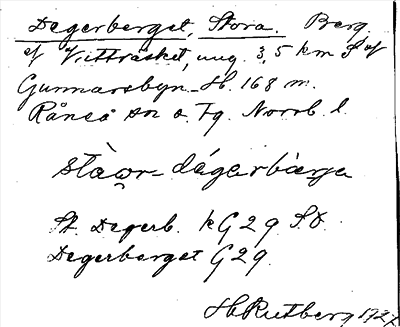 Degerberget, Stora. Berg
ef Vitträsket, ung. 3,5 km S of
Gunnarsbyn. H. 168 m.
Råneå sn o. Tg. Norrb. l.
stàor- dágerbàrja
St. Degerb. k G 29 S.O.
Degerberget G 29.
H. Rutberg 1927